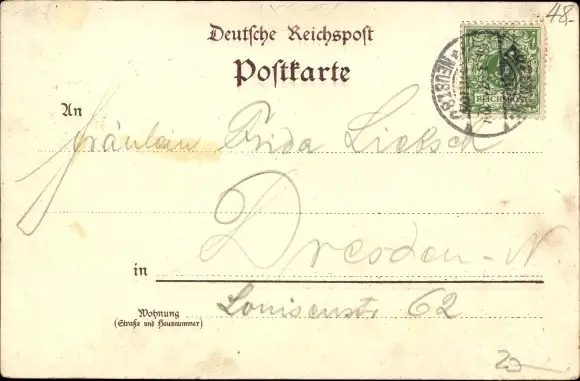 48.-
Deutsche Reichspost
Postkarte
REICHSPOST
An
Fräulein Frida Liebsch
Dresden-N
in
Louisenstr 62
Wohnung
(Straße und Hausnummer)
20